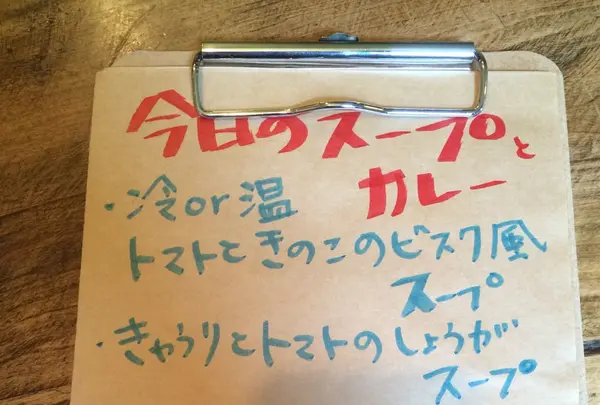 今日のスープと
カレー
・冷or温
トマトときのこのビスク風
スープ
・きゅうりとトマトのしょうが
スープ